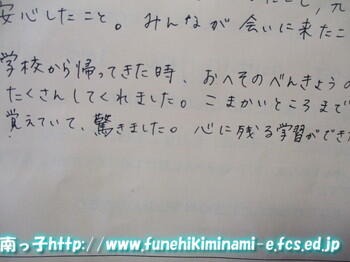 安心したこと。みんなが会いに来たこ
学校から帰ってきた時、おへそのべんきょうの
たくさんしてくれました。こまかいところまで
覚えていて、驚きました。心に残る学習ができ
南っ子http://www.funehikiminami-e.fcs.ed.jp